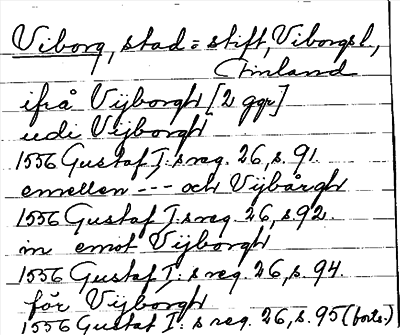 Viborg, stad = stift, Viborgsl.,
Finland
ifrå Vijborgh [2 ggr]
udi Vijborgh
1556 Gustaf I:s reg. 26, s. 91.
emellen --- och Vijbårgh
1556 Gustaf I:s reg. 26, s. 92.
in emot Vijborgh
1556 Gustaf I:s reg. 26, s. 94.
för Vijborgh
1556 Gustaf I:s reg. 26, s. 95 (forts.)